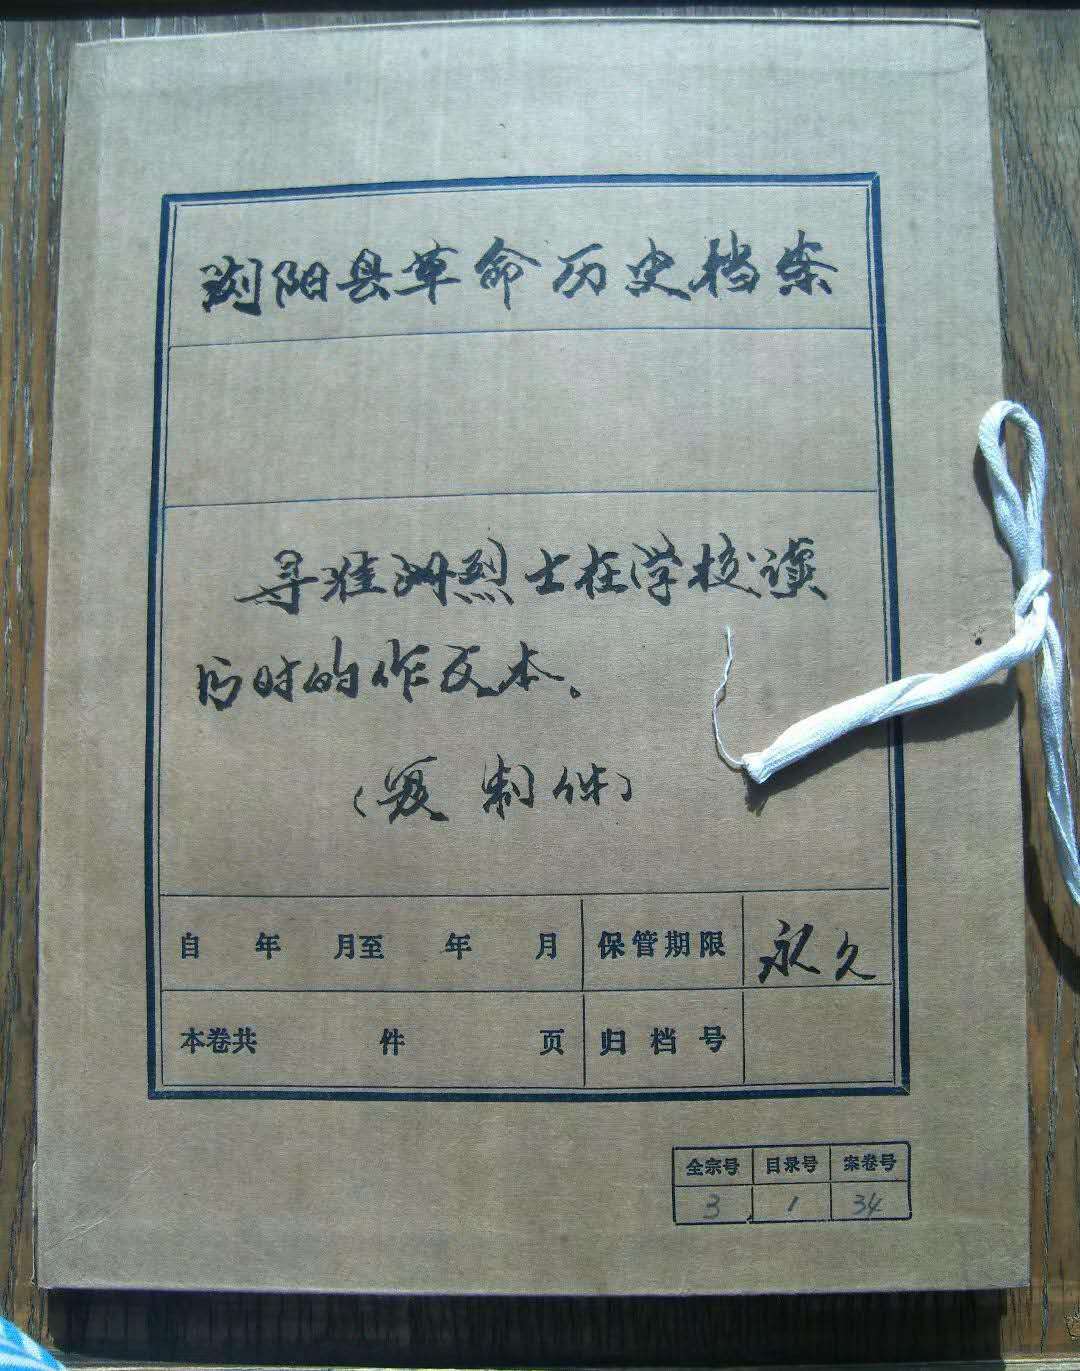 浏阳县革命历史档案
寻淮洲烈士在学校读
书时的作文本。
（复制件）
自 年 月至 年 月 保管期限 永久
本卷共 件 页 归档号
全宗号 目录号 案卷号
3 1 34